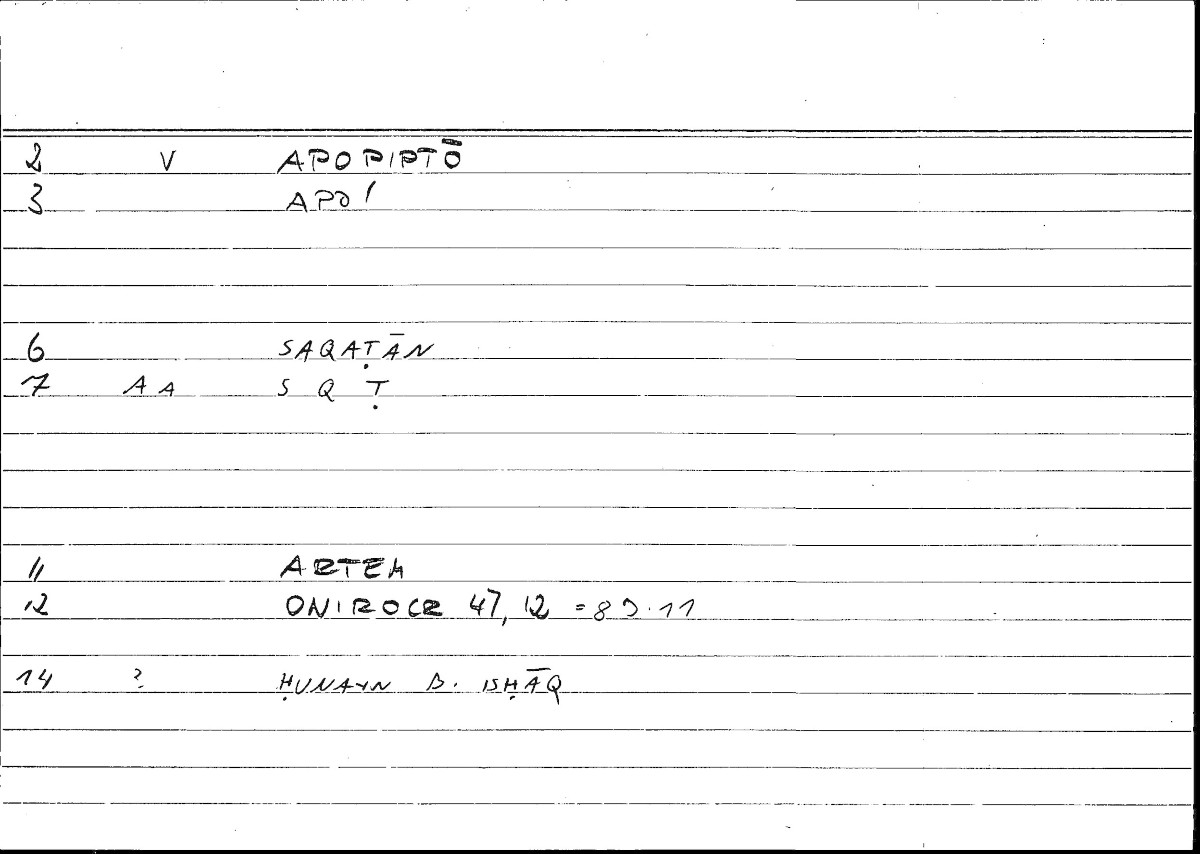 2 V APOPIPTŌ
3 APO /
6 SAQAṬĀN
7 AA S Q Ṭ
11 ARTEM
12 ONIROCR 47, 12 = 89.11
14 ? ḤUNAYN B. ISḤĀQ